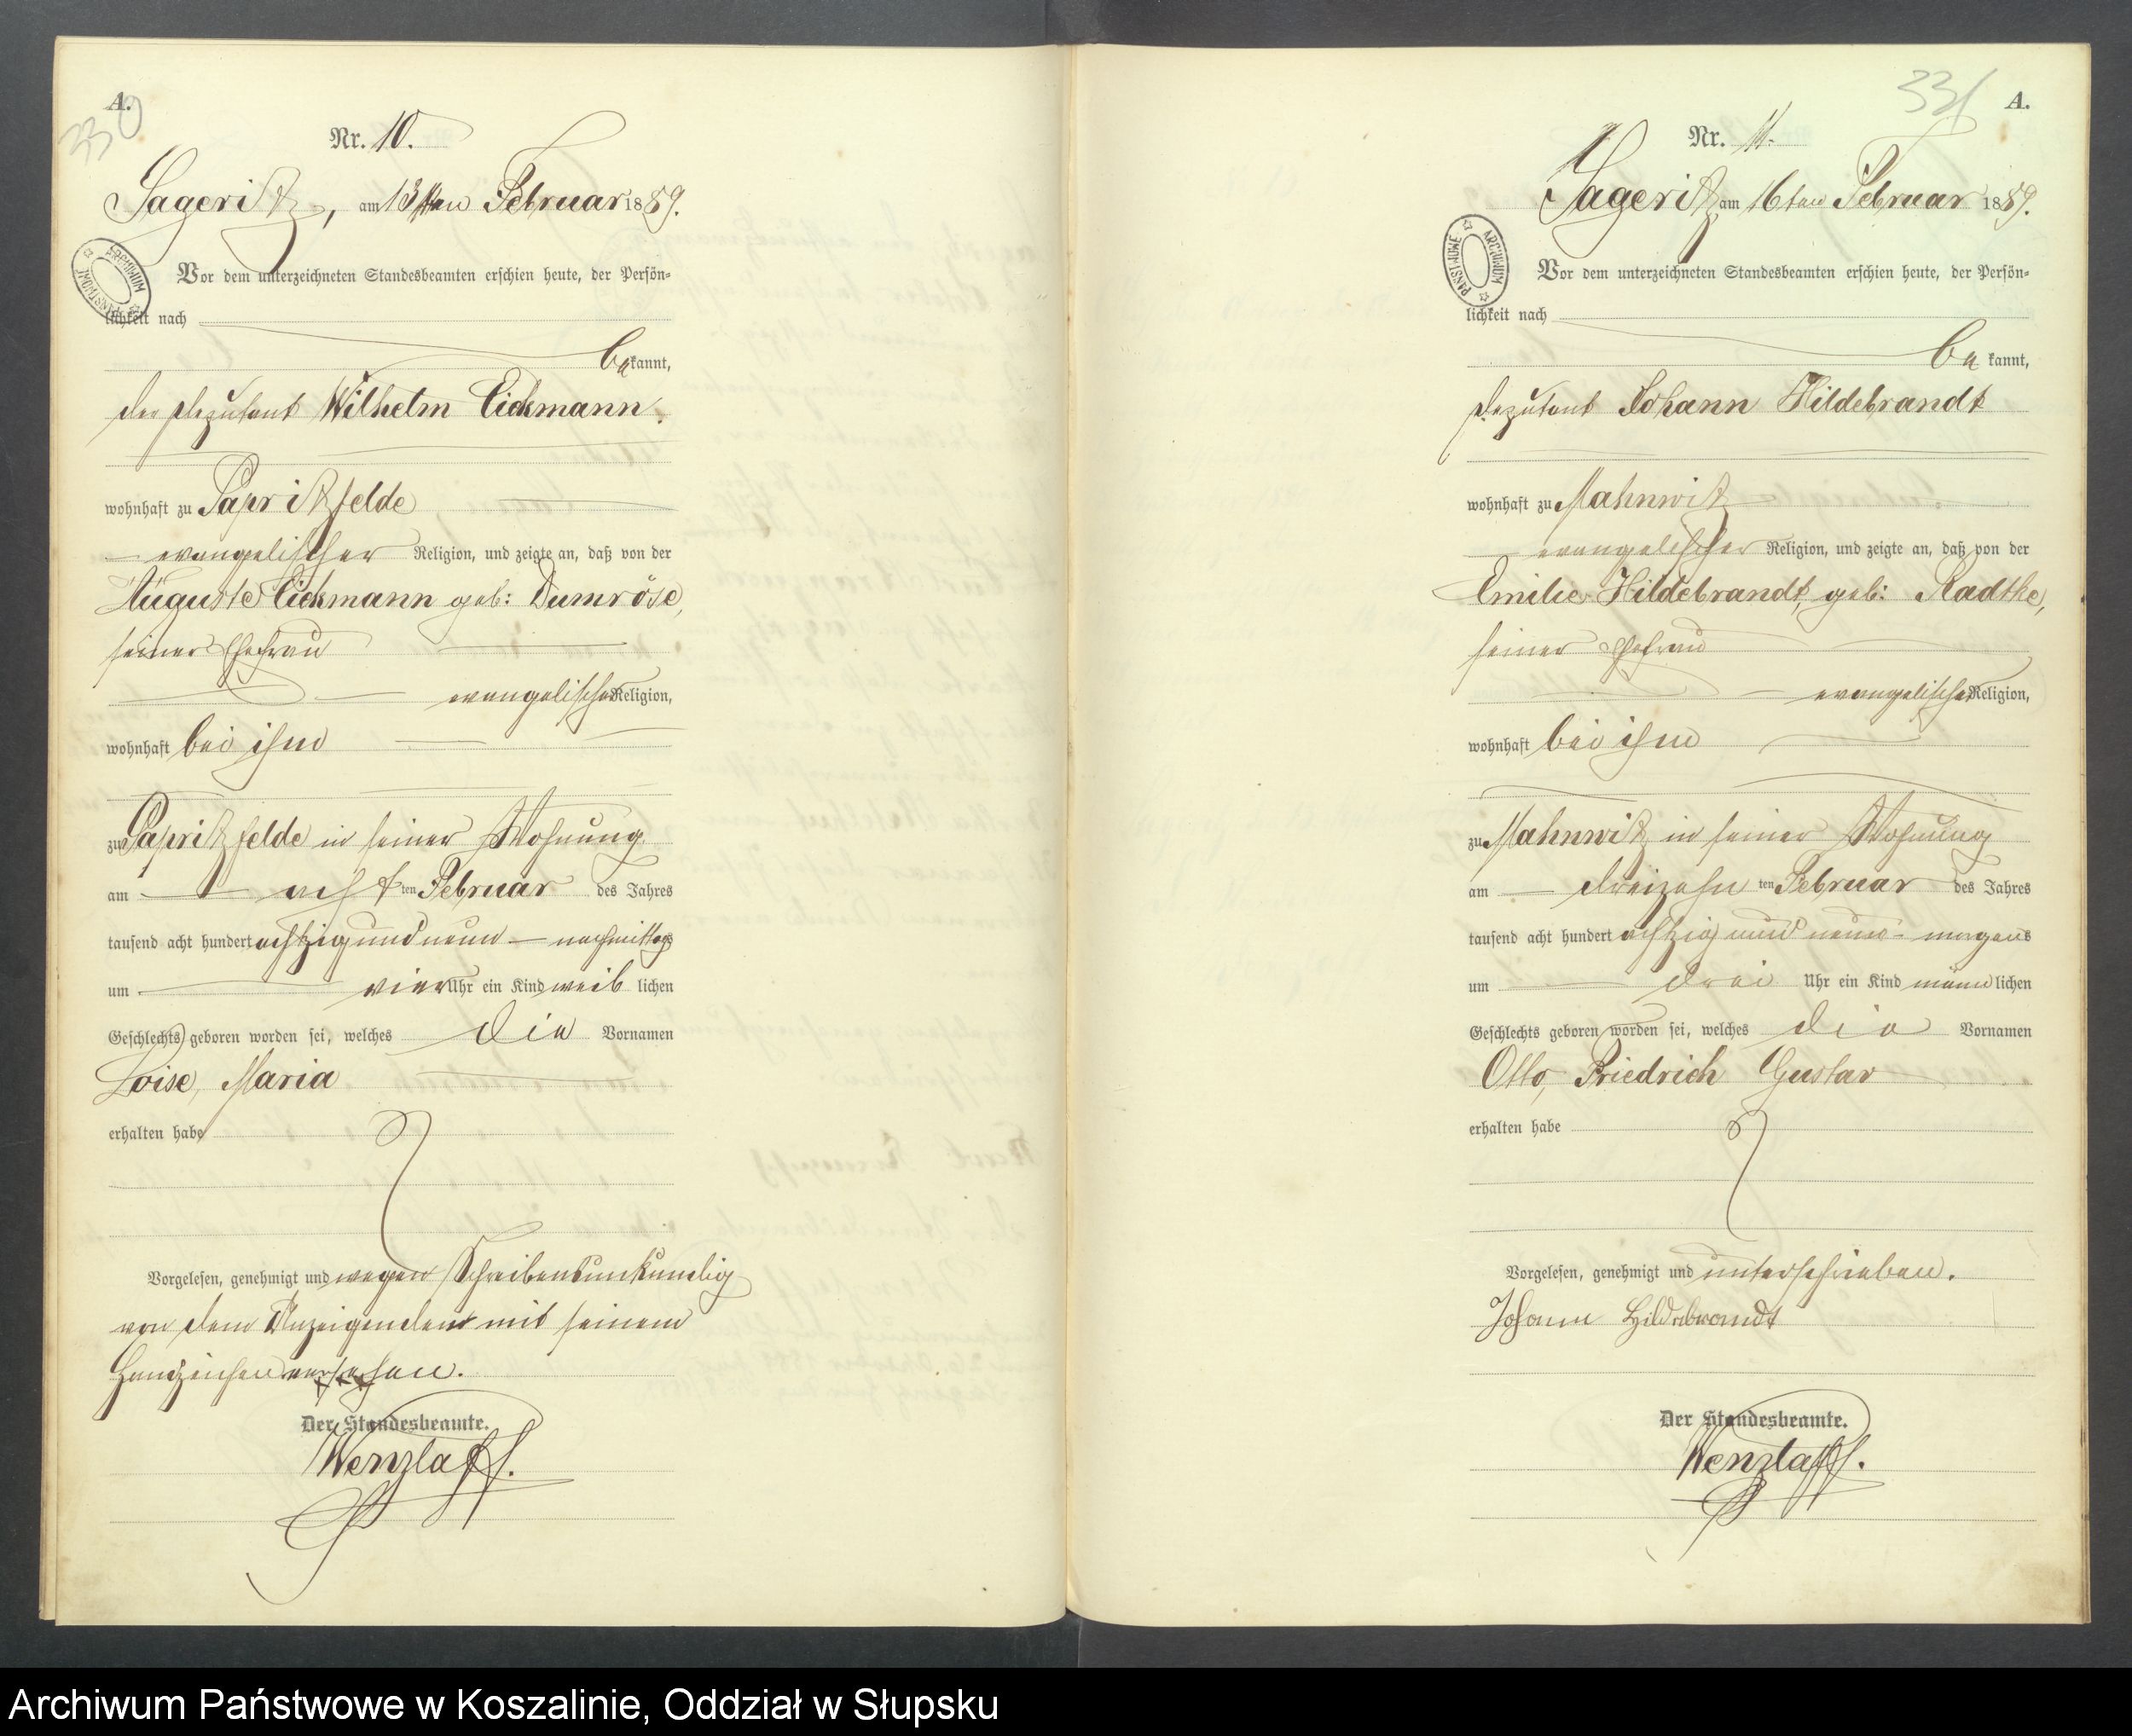 330
A.
Nr. 10.
Sageritz, am 13ten Februar 1889.
Vor dem unterzeichneten Standesbeamten erschien heute, der Persön-
lichkeit nach
bekannt,
der Deputant Wilhelm Eickmann.
wohnhaft zu Papritzfelde
evangelischer Religion, und zeigte an, daß von der
Auguste Eickmann geb: Dumröse,
seiner Ehefrau
evangelischer Religion,
wohnhaft bei ihm
zu Papritzfelde in seiner Wohnung
am acht ten Februar des Jahres
tausend acht hundert achtzig und neun nachmittags
um vier Uhr ein Kind weib lichen
Geschlechts geboren worden sei, welches die Vornamen
Loise, Maria
erhalten habe
Vorgelesen, genehmigt und wegen Schreibensunkundig
von dem Anzeigenden mit seinem
Handzeichen versehen.
+++
Der Standesbeamte.
Wenzlaff.
ARCHIWUM PAŃSTWOWE
331
A.
Nr. 11.
Sageritz am 16ten Februar 1889.
Vor dem unterzeichneten Standesbeamten erschien heute, der Persön-
lichkeit nach
be kannt,
Deputant Johann Hildebrandt
wohnhaft zu Mahnwitz
evangelischer Religion, und zeigte an, daß von der
Emilie Hildebrandt, geb: Radtke,
seiner Ehefrau
evangelischer Religion,
wohnhaft bei ihm
zu Mahnwitz in seiner Wohnung
am dreizehn ten Februar des Jahres
tausend acht hundert achtzig und neun morgens
um drei Uhr ein Kind männ lichen
Geschlechts geboren worden sei, welches die Vornamen
Otto, Friedrich Gustav
erhalten habe
Vorgelesen, genehmigt und unterschrieben.
Johann Hildebrandt
Der Standesbeamte.
Wenzlaff.
ARCHIWUM PAŃSTWOWE
Archiwum Państwowe w Koszalinie, Oddział w Słupsku